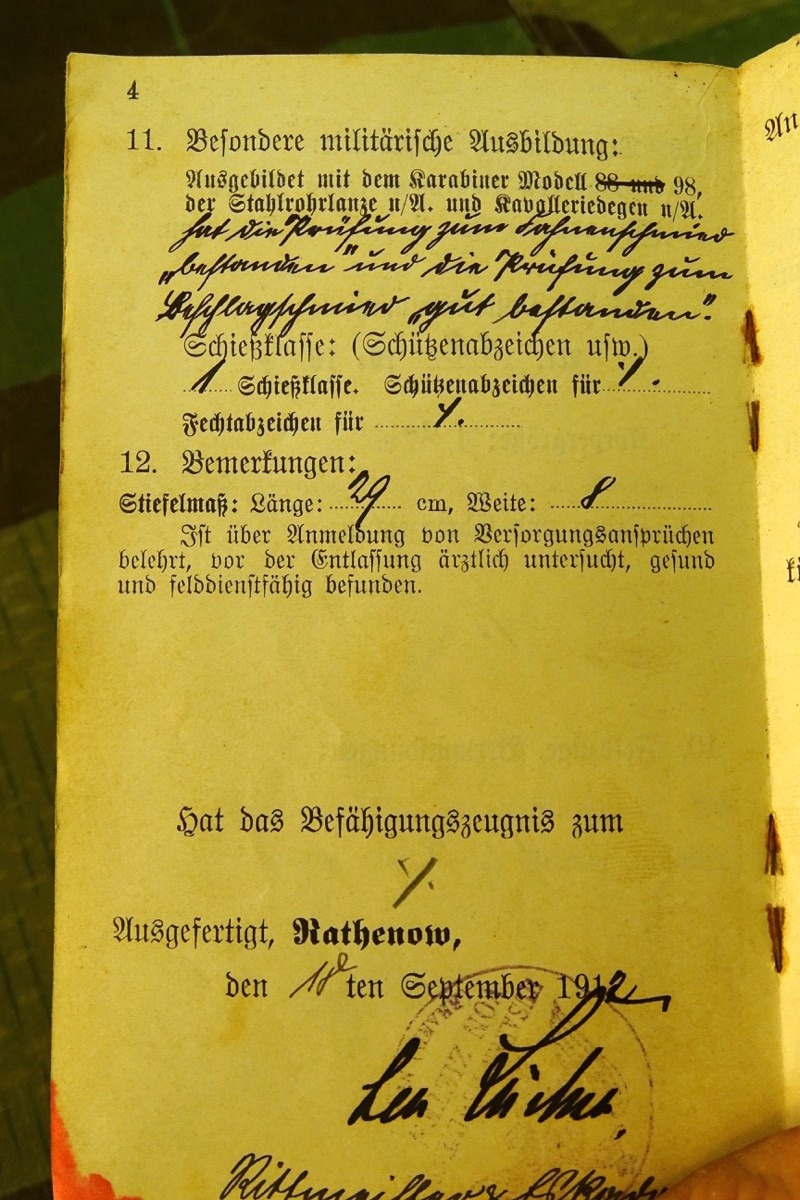 4
11. Besondere militärische Ausbildung:
Ausgebildet mit dem Karabiner Modell 88 und 98,
der Stahlrohrlanze n/A. und Kavalleriedegen n/A.
hat die Prüfung zum Fahnenschmied
„bestanden" und die Prüfung zum
Beschlagschmied „gut bestanden".
Schießklasse: (Schützenabzeichen usw.)
1 Schießklasse. Schützenabzeichen für ·/.
Fechtabzeichen für ·/.
12. Bemerkungen:
Stiefelmaß: Länge: 29 cm, Weite: 8
Ist über Anmeldung von Versorgungsansprüchen
belehrt, vor der Entlassung ärztlich untersucht, gesund
und felddienstfähig befunden.
Hat das Befähigungszeugnis zum
·/.
Ausgefertigt, Rathenow,
den ten September 1912
Rittmeister
An